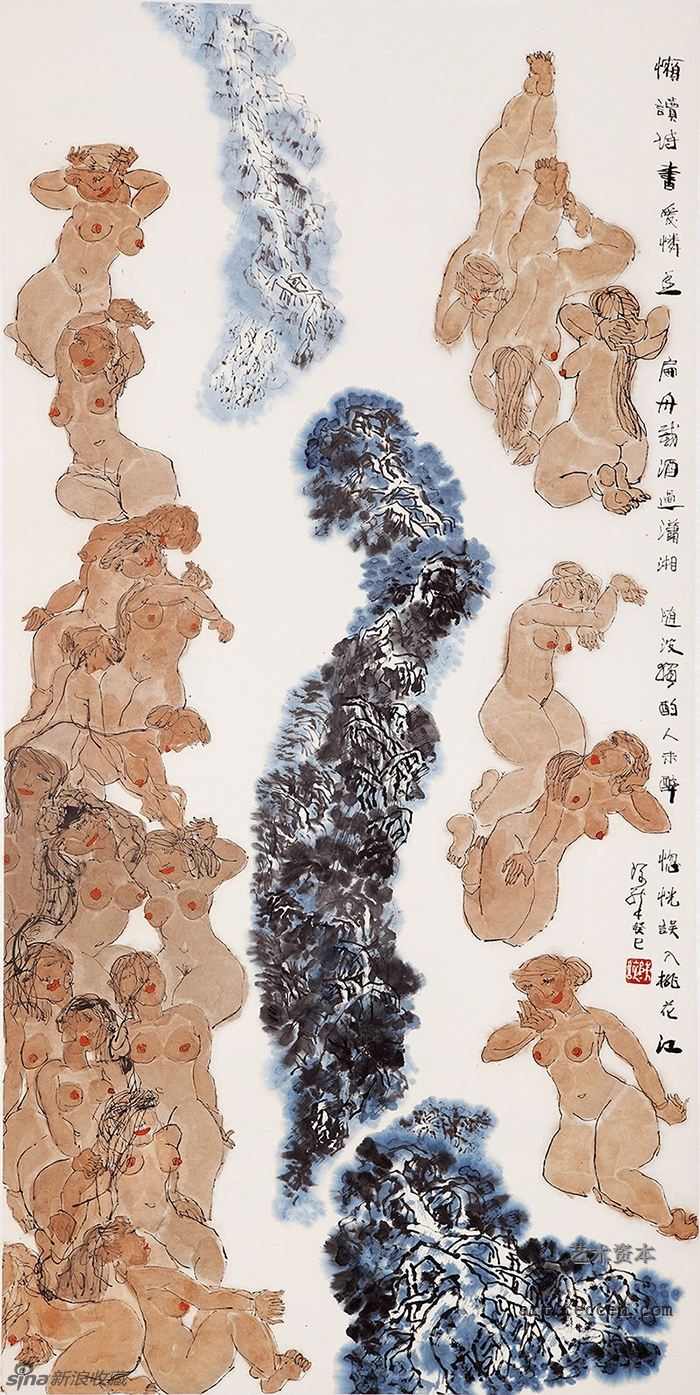 懶讀詩書愛憐 扁舟載酒過瀟湘 隨波獨酌人未醉 惚恍誤入桃花江
癸巳
艺术资本
sina新浪收藏